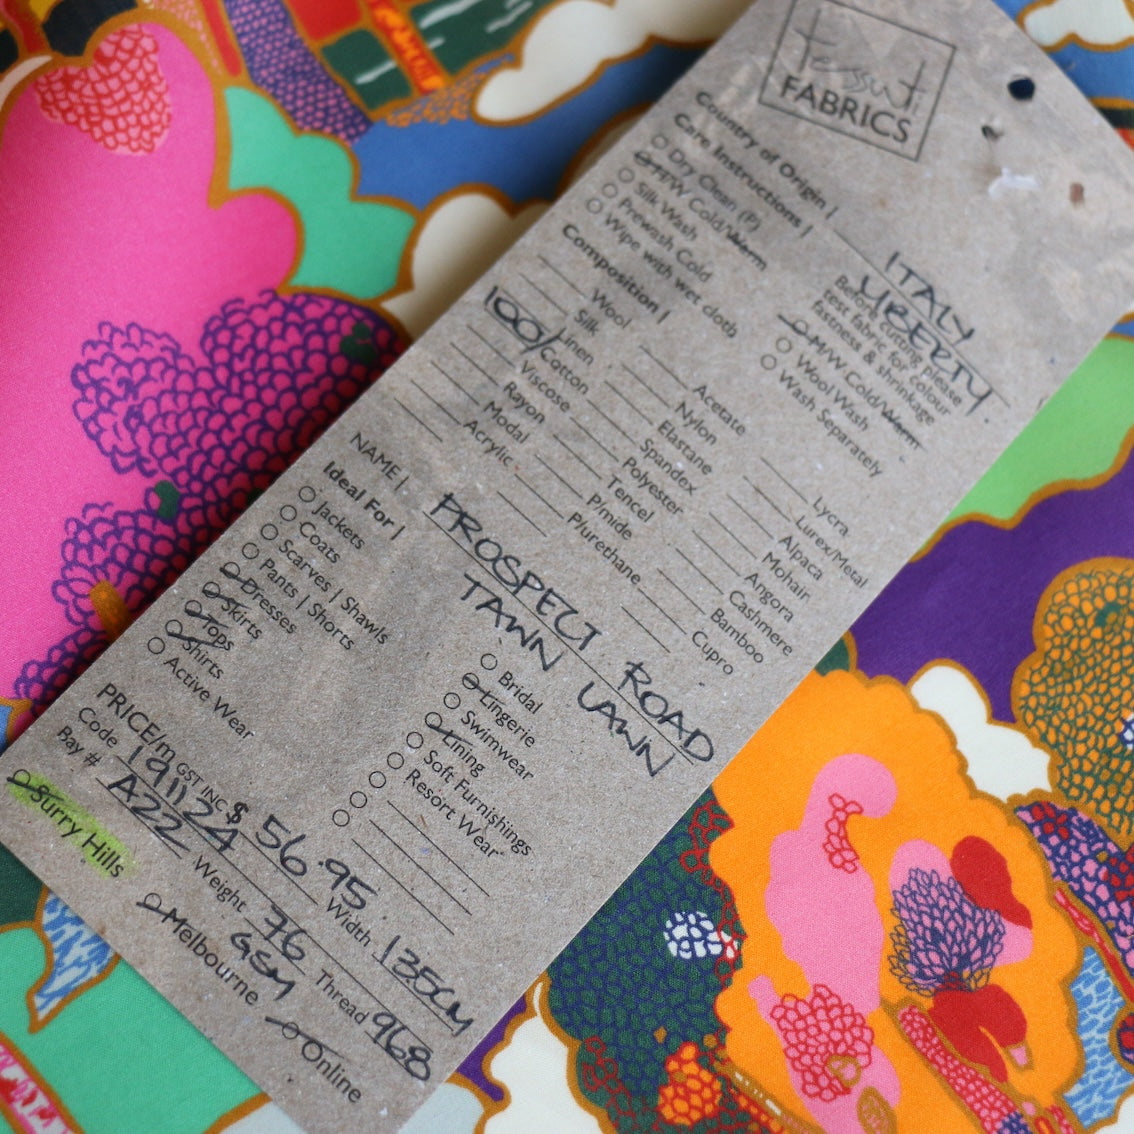 Tessuti
FABRICS
Country of Origin | ITALY
LIBERTY
Care Instructions |
Before cutting please
test fabric for colour
fastness & shrinkage
Dry Clean (P)
H/W Cold/Warm
Silk Wash
Prewash Cold
Wipe with wet cloth
M/W Cold/Warm
Wool Wash
Wash Separately
Composition |
Wool
Silk
Linen
100% Cotton
Viscose
Rayon
Modal
Acrylic
Acetate
Nylon
Elastane
Spandex
Polyester
Tencel
P/mide
Plurethane
Lycra
Lurex/Metal
Alpaca
Mohain
Angora
Cashmere
Bamboo
Cupro
NAME | PROSPECT ROAD
TAWN LAWN
Ideal For |
Jackets
Coats
Scarves | Shawls
Pants | Shorts
Dresses
Skirts
Tops
Shirts
Active Wear
Bridal
Lingerie
Swimwear
Lining
Soft Furnishings
Resort Wear
PRICE/m GST INC $ 56.95
Code 191124 Width 135CM
Bay # A22 Weight 76 GSM Thread 968
Surry Hills Melbourne Online